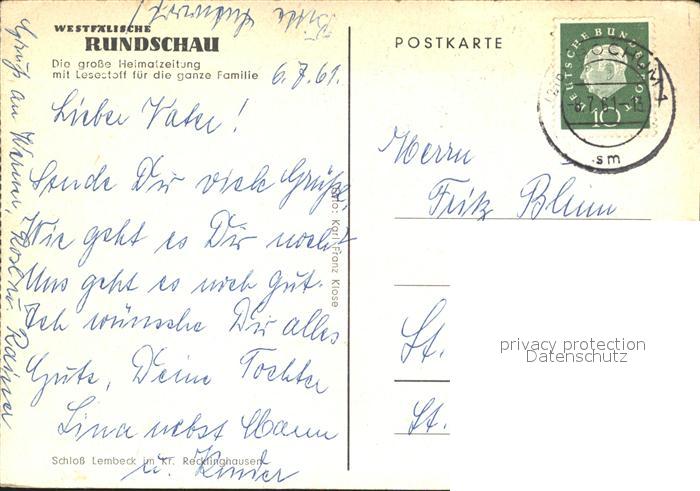 WESTFÄLISCHE
RUNDSCHAU
Die große Heimatzeitung
mit Lesestoff für die ganze Familie
Bitte Antwort!
6.7.61.
Lieber Vater!
Sende Dir viele Grüße.
Wie geht es Dir noch?
Uns geht es noch gut.
Ich wünsche Dir alles
Gute, Deine Tochter
Lina nebst Mann
u. Kinder
Gruß an Werner, u. Rainer
Schloß Lembeck im Kr. Recklinghausen
Foto: Karl-Franz Klose
POSTKARTE
DEUTSCHE BUNDESPOST
10
BOCHUM 1
-6.7.61-13
sm
Herrn
Fritz Blum
St.
St.
privacy protection
Datenschutz